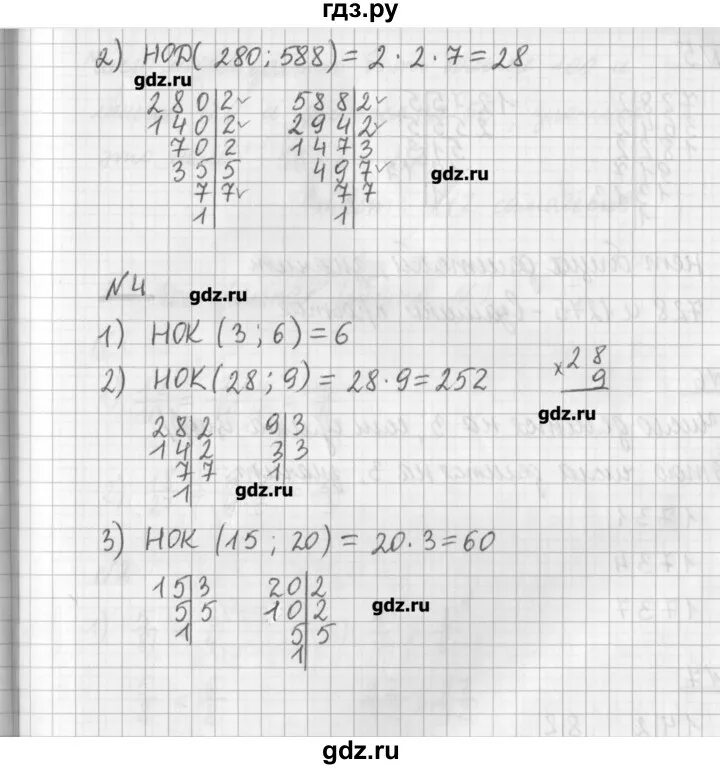 гдз.ру
2) НОД( 280; 588) = 2 · 2 · 7 = 28
gdz.ru
280|2✓ 588|2✓
140|2✓ 294|2✓
70|2 147|3
35|5 49|7✓ gdz.ru
7|7✓ 7|7
1| 1|
№4 gdz.ru
1) НОК (3 ; 6) = 6
2) НОК(28 ; 9) = 28 · 9 = 252
×28
9
gdz.ru
28|2 9|3
14|2 3|3
7|7 1|
1| gdz.ru
3) НОК (15 ; 20) = 20 · 3 = 60
15|3 20|2
5|5 10|2 gdz.ru
1| 5|5
1|
gdz.ru